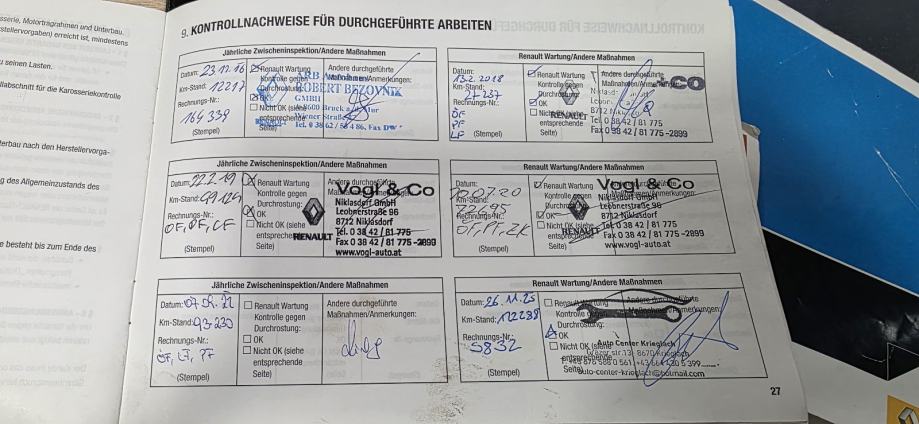 sserie, Motortragrahmen und Unterbau.
stellervorgaben) erreicht ist, mindestens
u seinen Lasten.
llabschnitt für die Karosseriekontrolle
terbau nach den Herstellervorga-
g des Allgemeinzustands des
e besteht bis zum Ende des
9. KONTROLLNACHWEISE FÜR DURCHGEFÜHRTE ARBEITEN
Jährliche Zwischeninspektion/Andere Maßnahmen
Datum: 23.12.16
Km-Stand: 12217
Rechnungs-Nr.:
164 339
(Stempel)
Renault Wartung
Kontrolle gegen
Durchrostung:
OK
Nicht OK (siehe
entsprechende
Seite)
Andere durchgeführte
Maßnahmen/Anmerkungen:
ROBERT BEZOVNIK
GMBH
Wiener Straße
Renault Wartung/Andere Maßnahmen
Datum:
13.2.2018
Km-Stand:
27237
Rechnungs-Nr.:
ÖF
PF
LF
(Stempel)
Renault Wartung
Kontrolle gegen
Durchrostung:
OK
Seite)
Andere durchgeführte
Maßnahmen/Anmerkungen:
& CO
RENAULT
8712 Niklasdorf
Tel. 0 38 42 / 81 775
Fax 0 38 42 / 81 775 -2899
Jährliche Zwischeninspektion/Andere Maßnahmen
Datum: 22.2.19
Km-Stand: 49124
Rechnungs-Nr.:
ÖF, PF, LF
(Stempel)
Renault Wartung
Kontrolle gegen
Durchrostung:
OK
Nicht OK (siehe
entsprechende
Seite)
RENAULT
Vogl & Co
Niklasdorf GmbH
Leobnerstraße 96
8712 Niklasdorf
Tel. 0 38 42 / 81 775
Fax 0 38 42 / 81 775 -2899
www.vogl-auto.at
Renault Wartung/Andere Maßnahmen
Datum:
Km-Stand:
Rechnungs-Nr.:
ÖF, PF, ZK
(Stempel)
Renault Wartung
Kontrolle gegen
Durchrostung:
OK
Nicht OK (siehe
Seite)
RENAULT
Vogl & Co
Niklasdorf GmbH
Leobnerstraße 96
8712 Niklasdorf
Tel. 0 38 42 / 81 775
Fax 0 38 42 / 81 775 -2899
www.vogl-auto.at
Jährliche Zwischeninspektion/Andere Maßnahmen
Datum:
Km-Stand: 93230
Rechnungs-Nr.:
(Stempel)
Renault Wartung
Kontrolle gegen
Durchrostung:
OK
Nicht OK (siehe
entsprechende
Seite)
Andere durchgeführte
Maßnahmen/Anmerkungen:
Renault Wartung/Andere Maßnahmen
Datum: 26.11.25
Km-Stand: 112238
Rechnungs-Nr.:
5832
(Stempel)
Renault Wartung
Kontrolle gegen
Durchrostung:
OK
Nicht OK (siehe
entsprechende
Seite)
Andere durchgeführte
Maßnahmen/Anmerkungen:
Auto Center Krieglach
8670 Krieglach
auto-center-krieglach@hotmail.com
27